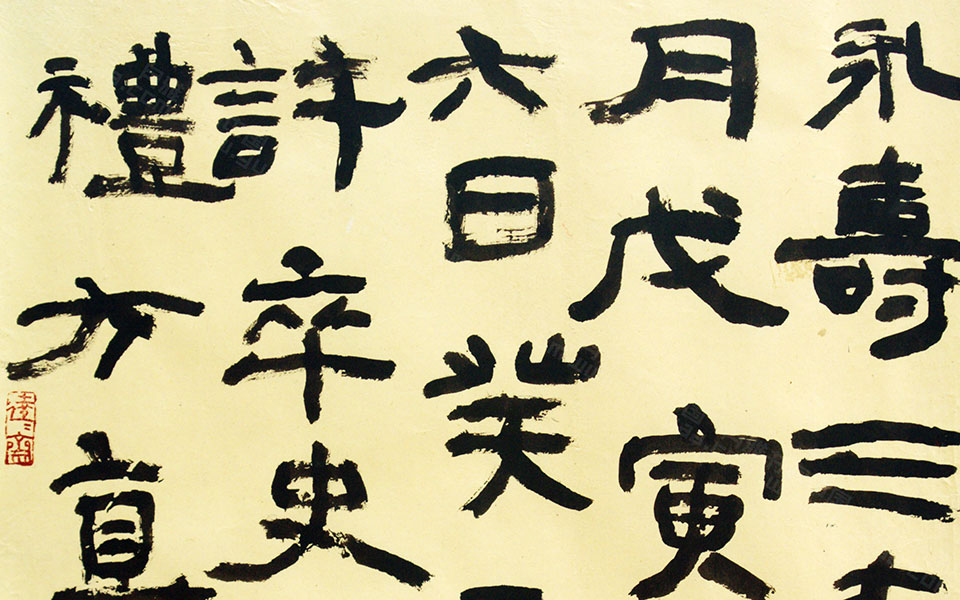 永壽三
月戊寅
六日癸
許卒史
禮方